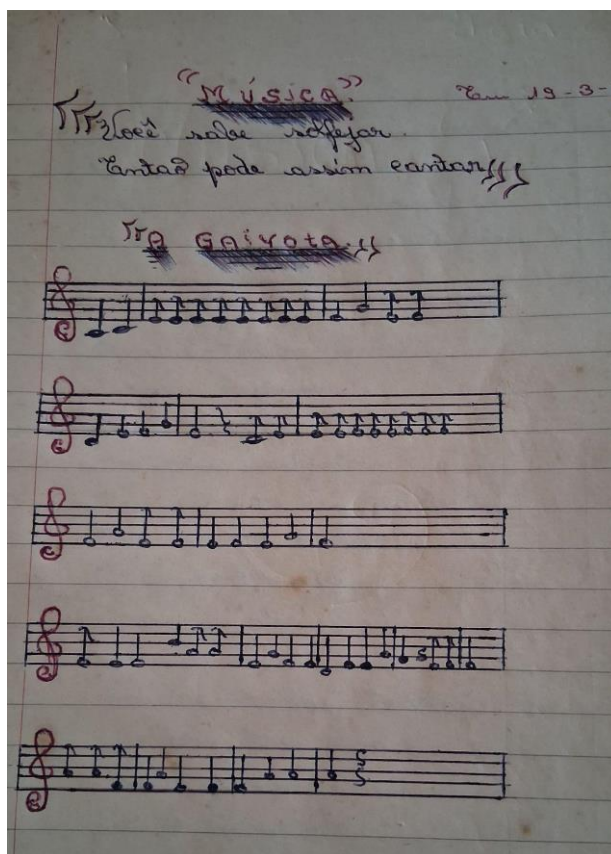 "Música"
Em 19-3-
Você sabe solfejar.
Então pode assim cantar
A Gaivota